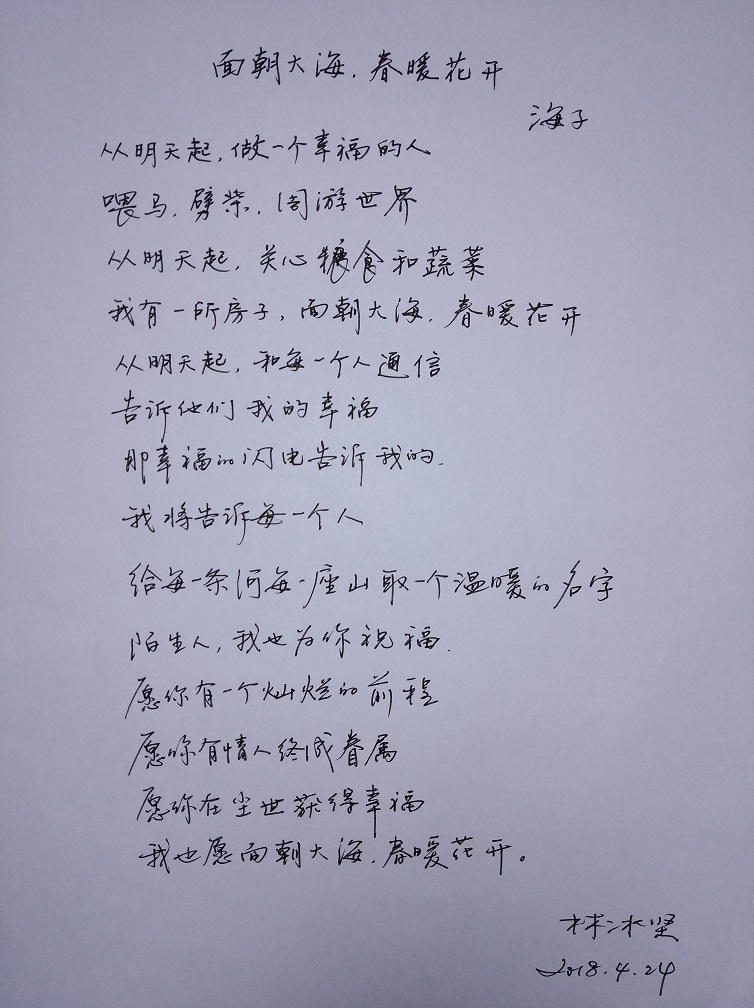 面朝大海.春暖花开
海子
从明天起,做一个幸福的人
喂马.劈柴.周游世界
从明天起,关心粮食和蔬菜
我有一所房子,面朝大海.春暖花开
从明天起,和每一个人通信
告诉他们我的幸福
那幸福的闪电告诉我的.
我将告诉每一个人
给每一条河每一座山取一个温暖的名字
陌生人,我也为你祝福.
愿你有一个灿烂的前程
愿你有情人终成眷属
愿你在尘世获得幸福
我也愿面朝大海.春暖花开。
林冰坚
2018.4.24